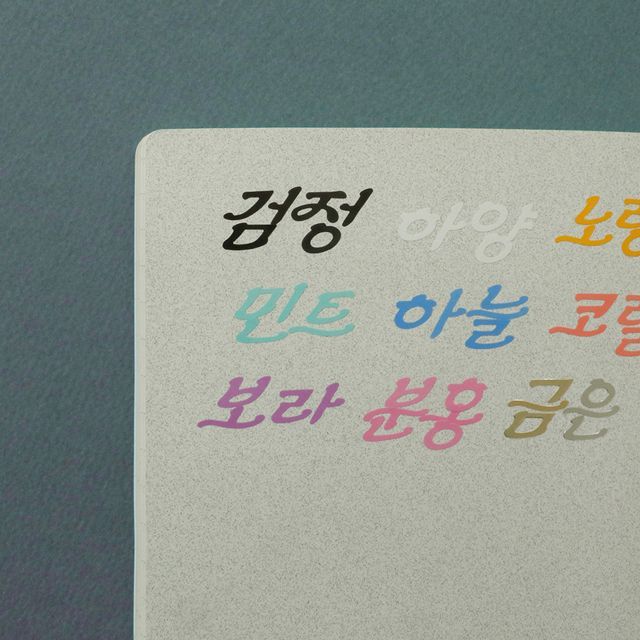 검정 하양 노랑
민트 하늘 코랄
보라 분홍 금은